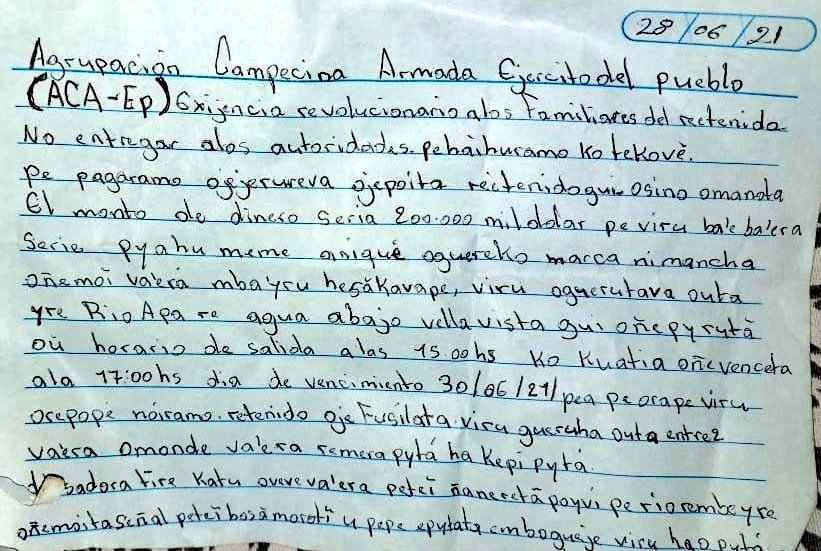 28/06/21
Agrupación Campecina Armada Ejercito del pueblo
(ACA-Ep) Exijencia revolucionario alos Familiares del rectenida
No entregar alos autoridades. pehaihuramo ko tekovè.
pe pagáramo ojejerureva ojepoita rectenidogui osino omanota
El monto de dinero seria 200.000 mil dolar pe viru ba'e ba'era
Serie pyahu meme aniquè oguereko marca ni mancha
oñemoi va'erá mbayru hesãkavape, viru oguerutava outa
yre Rio Apa re agua abajo vella vista gui oñepyrutã
oú horario de salida alas 15.00hs Ko Kuatia oñevenceta
ala 17:00hs dia de vencimiento 30/06/21/ pea pe orape viru
orepope nóiramo. retenido oje Fusilata viru gueruha outa entre 2
va'era omonde va'era remera pytá ha Kepi pytá.
Tire katu oveve va'era peteĩ ñaneretã poyvi pe rio rembeyre
oñemoita señal peteĩ bosa morotĩ u pepe epytata embogueje viru hao pytá